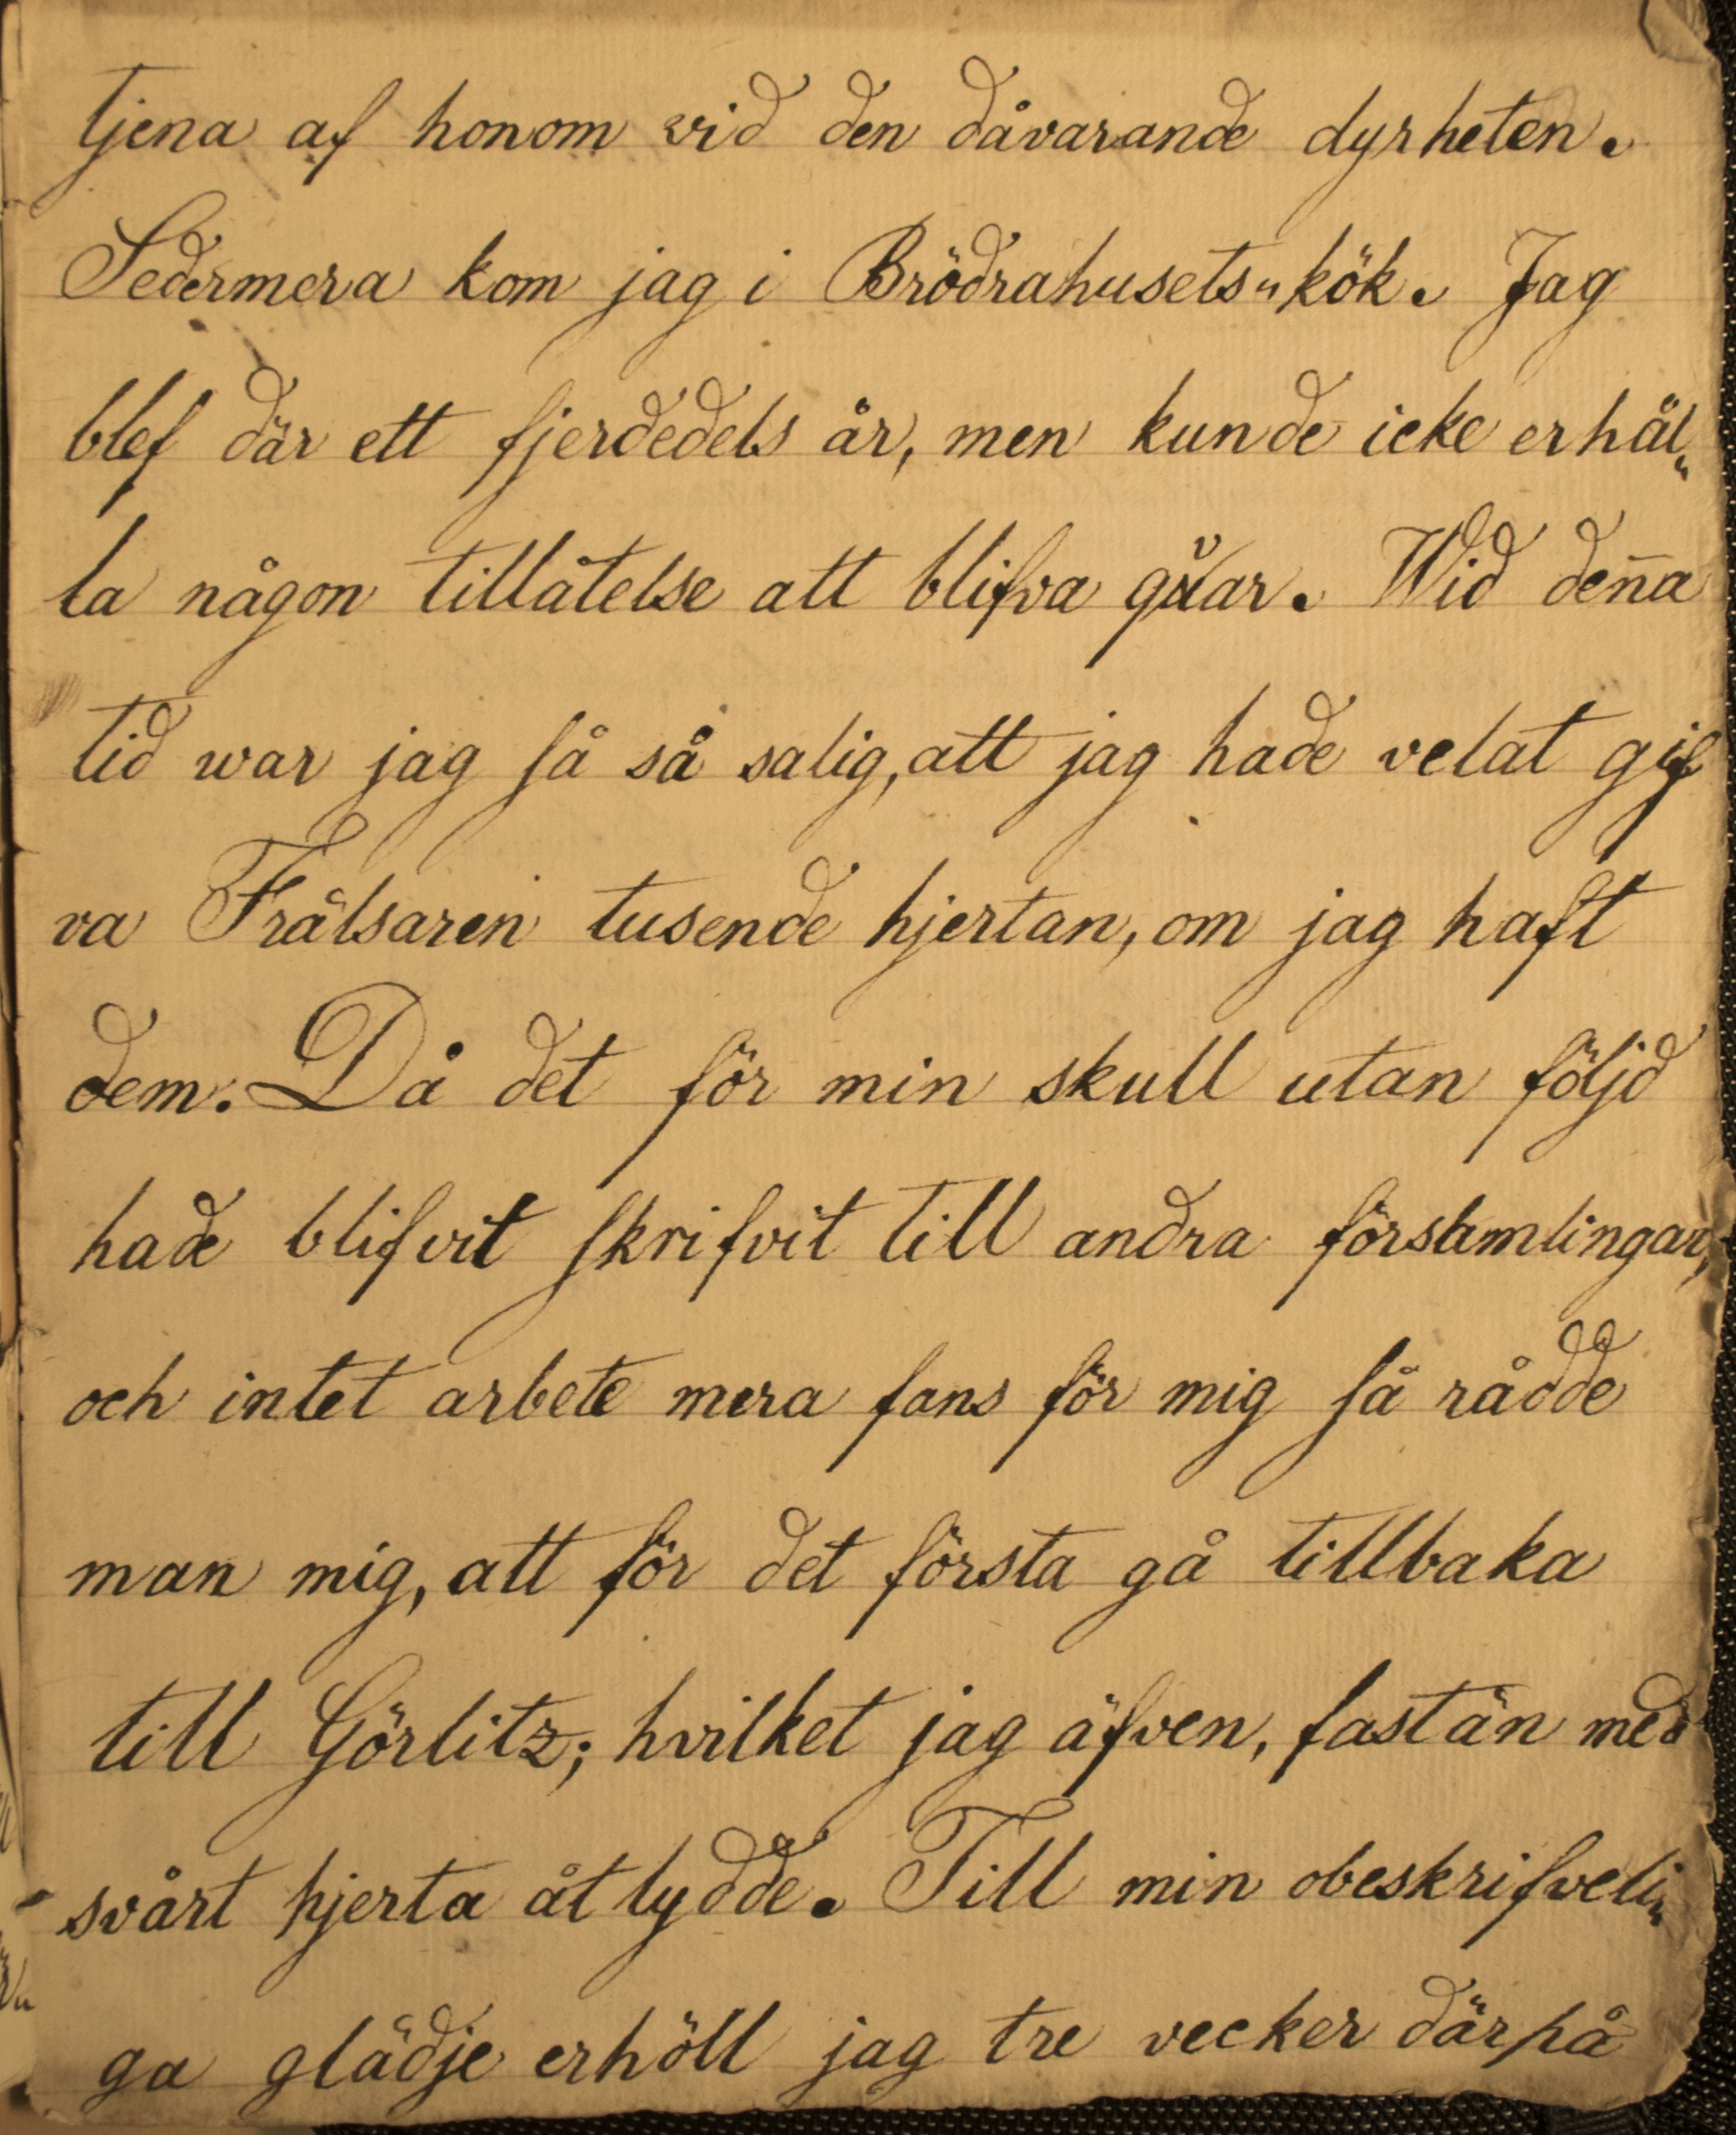 tjena af honom vid den dåvarande dyrheten.
Sedermera kom jag i Brödrahusets„kök. Jag
blef där ett fjerdedels år, men kunde icke erhål„
la någon tillåtelse att blifva qvar. Wid den̄a
tid war jag så så salig, att jag hade velat gif
va Frälsaren tusende hjertan, om jag haft
dem. Då det för min skull utan följd
hade blifvit skrifvit till andra församlingar,
och intet arbete mera fans för mig så rådde
man mig, att för det första gå tillbaka
till Görlitz; hvilket jag äfven, fastän med
svårt hjerta åtlydde. Till min obeskrifveli„
ga glädje erhöll jag tre vecker därpå